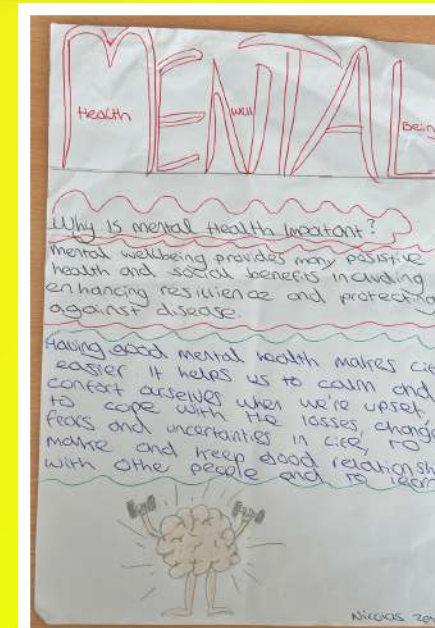 MENTAL
Health Well Being
Why is mental Health Impotant?
mental wellbeing provides many posistive
health and social benefits including
enhancing resillience and protecting
against disease.
Having good mental health makes life
easier. It helps us to calm and
confort ourselves when we're upset,
to cope with the losses, change
fears and uncertainties in life, to
make and keep good relationsh
with othe people and to learn
Nicolas